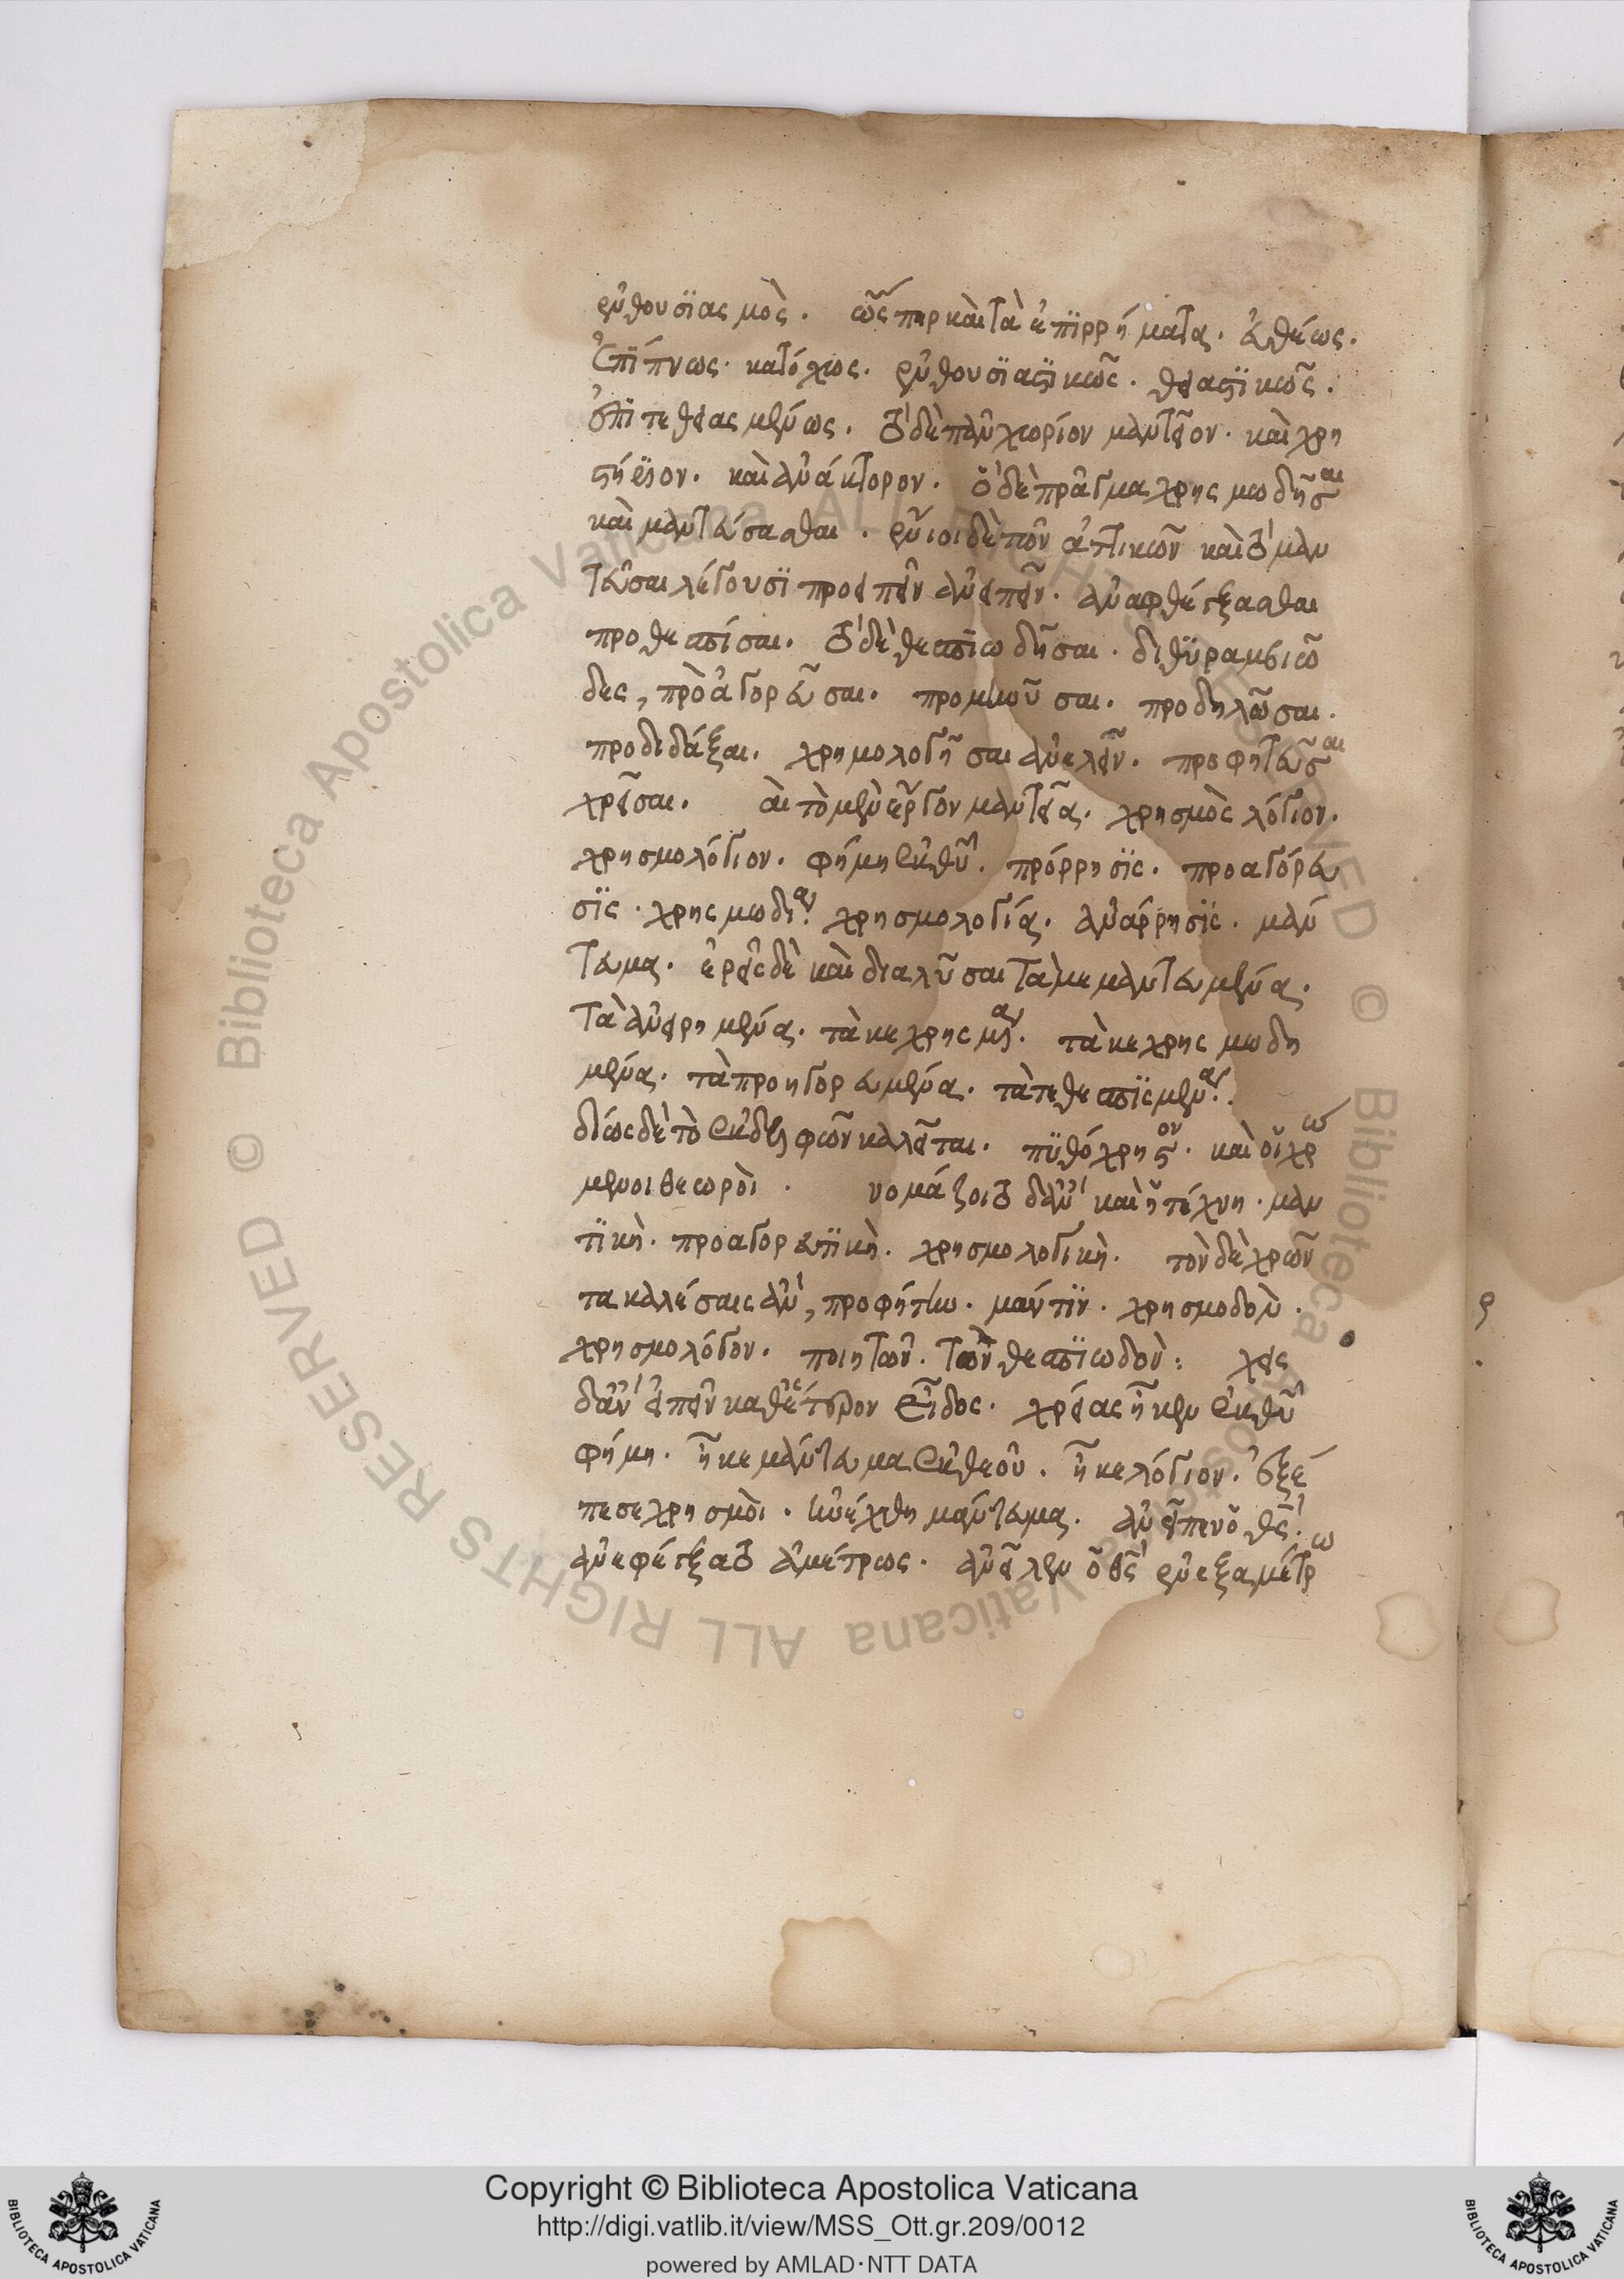 ἐνθουσϊασμὸς. ὥσπερ καὶ τὰ ἐπϊρρήματα. ἐνθέως.
ἐπϊπνως. κατόχως. ἐνθουσϊαστϊκῶς. θειαστϊκῶς.
ἐπϊτεθειασμένως. τὸ δὲ πᾶν χωρίον μαντεῖον. καὶ χρη
στήριον. καὶ ἀνάκτορον. τὸ δὲ πρᾶγμα χρησμωδῆσαι
καὶ μαντεύσασθαι. ἔνιοι δὲ τῶν ἀττικῶν καὶ τὸ μαν
τεῦσαι λέγουσϊ προειπεῖν ἀνειπεῖν. ἀναφθέγξασθαι
προθεσπίσαι. τὸ δὲ θεσπϊωδῆσαι. διθϋραμβιῶ
δες, προαγορεῦσαι. προμηνῦσαι. προδηλῶσαι.
προδιδάξαι. χρημολογῆσαι ἀνελεῖν. προφητεῦσαι
χρεῖσαι. αὶ τὸ μὲν ἔργον μαντεῖα. χρησμὸς λόγιον.
χρησμολόγιον. φήμη ἐκ θεοῦ. πρόρρησϊς. προαγόρευ
σϊς. χρησμωδία. χρησμολογία. ἀνάρρησϊς. μάν
τευμα. ἐρεῖς δὲ καὶ διαλῦσαι τὰ μεμαντευμένα.
τὰ ἀνειρημένα. τὰ κεχρησμένα. τὰ κεχρησμωδη
μένα. τὰ προηγορευμένα. τὰ τεθεσπϊσμένα.
ἰδίως δὲ τὸ ἐκ δελφῶν καλεῖται. πϋθόχρηστον. καὶ οἱ χρώ
μενοι θεωροὶ. νομάζοιτο δ' ἂν καὶ ἡ τέχνη. μαν
τϊκὴ. προαγορευτϊκὴ. χρησμολογικὴ. τὸν δὲ χρῶν
τα καλέσαις ἂν, προφήτην. μάντϊν. χρησμοδὸν.
χρησμολόγον. ποιητῶν. τῶν θεσπϊωδὸν: χεις
δ' ἂν εἰπεῖν καθ' ἕτερον εἶδος. χρείας ἧκεν ἐκ θεοῦ
φήμη. ἧκε μάντευμα ἐκ θεοῦ. ἧκε λόγιον. ἐξέ
πεσε χρησμὸι. ἠνέχθη μάντευμα. ἀνεῖπεν ὁ θεός.
ἀνεφέγξατο ἀμέτρως. ἀνεῖλεν ὁ θεὸς ἐν ἑξαμέτρω
Copyright © Biblioteca Apostolica Vaticana
http://digi.vatlib.it/view/MSS_Ott.gr.209/0012
powered by AMLAD·NTT DATA
BIBLIOTECA APOSTOLICA VATICANA
BIBLIOTECA APOSTOLICA VATICANA
© Biblioteca Apostolica Vaticana ALL RIGHTS RESERVED © Biblioteca Apostolica Vaticana ALL RIGHTS RESERVED